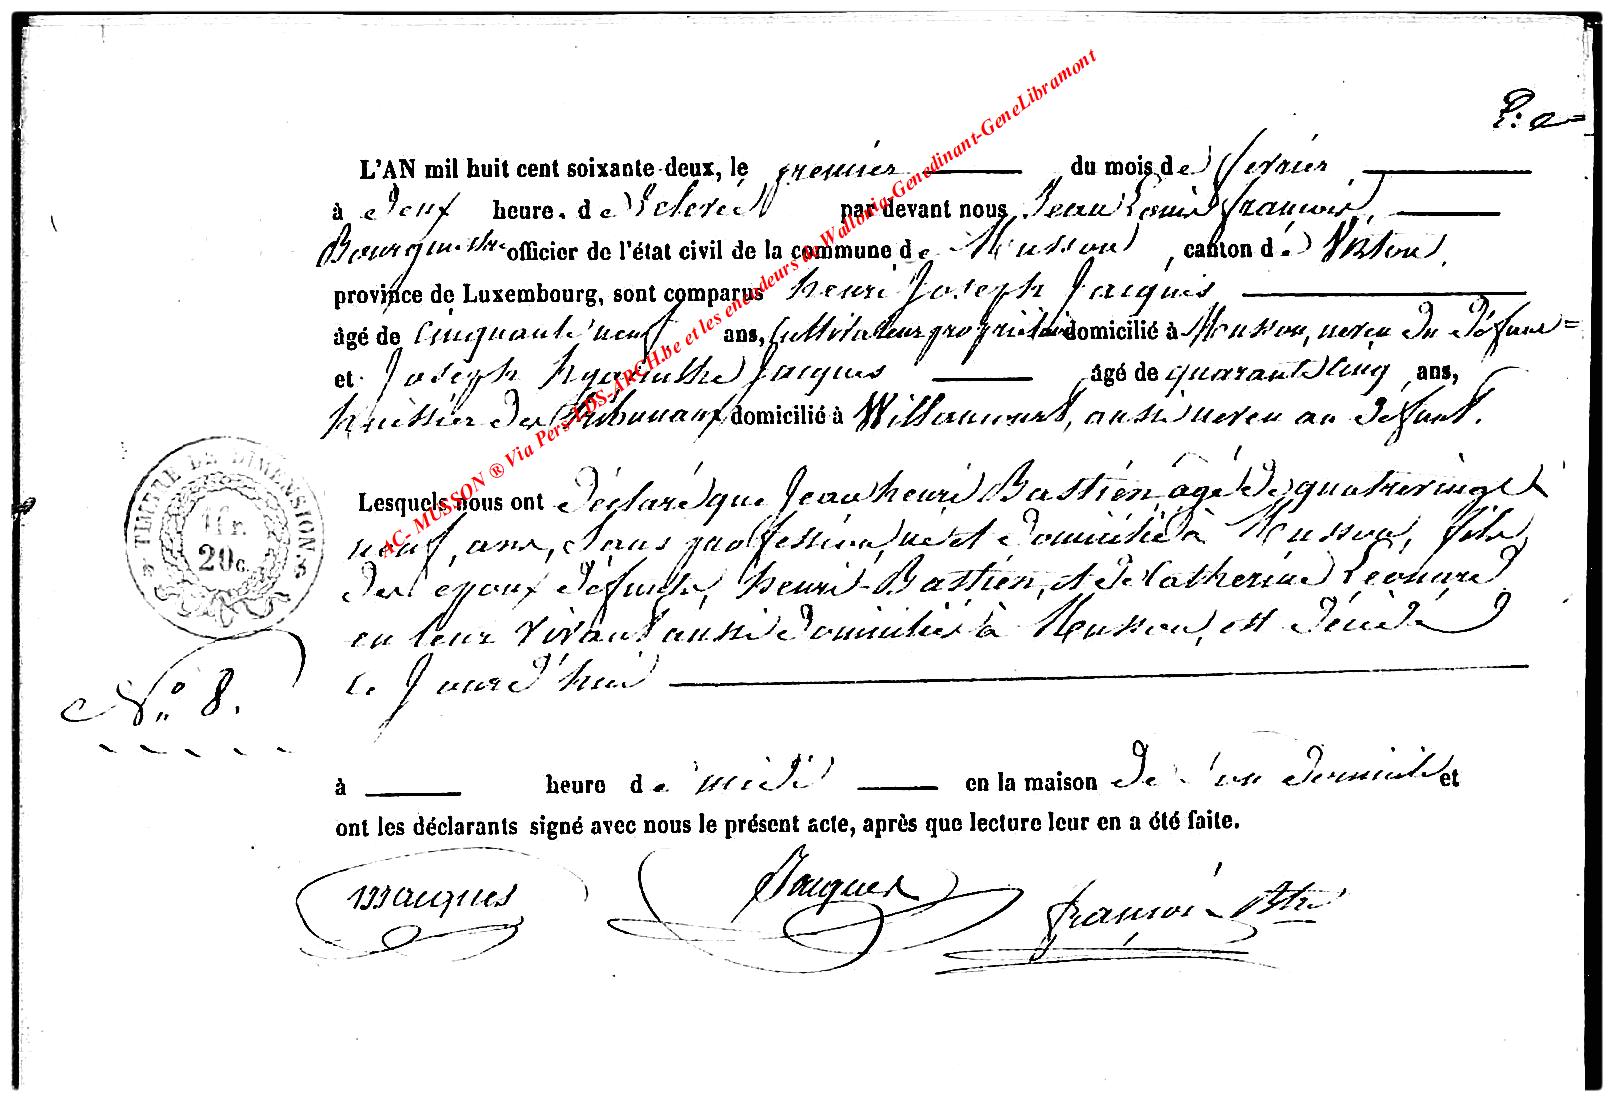 P: a=
L'AN mil huit cent soixante-deux, le premier du mois de fevrier
à deux heure. de relevée par devant nous Jean Louis françois,
Bourgmestre officier de l'état civil de la commune de Musson, canton de Virton,
province de Luxembourg, sont comparus henri Joseph Jacques
âgé de cinquante neuf ans, Cultivateur propriétaire domicilié à Musson, neveu du défunt=
et Joseph hyacinthe Jacques âgé de quarante cinq ans,
huissier des tribunaux domicilié à Willancourt, aussi neveu au defunt.
Lesquels nous ont déclaré que Jean henri Bastien, âgé de quatre vingt
neuf ans, sans profession, né et domicilié à Musson, fils
des époux défunts, henri Bastien, et de Catherine Leonard,
en leur vivant aussi domiciliés à Musson, est décédé
ce Jourd'hui
N° 8.
à heure de midi en la maison de son domicile et
ont les déclarants signé avec nous le présent acte, après que lecture leur en a été faite.
Jacques Jacques françois Btre
* TIMBRE DE DIMENSION. *
1 fr.
20c.
AC- MUSSON ® Via Pers-LDS-ARCH.be et les encodeurs de Wallonia-Genedinant-GeneLibramont